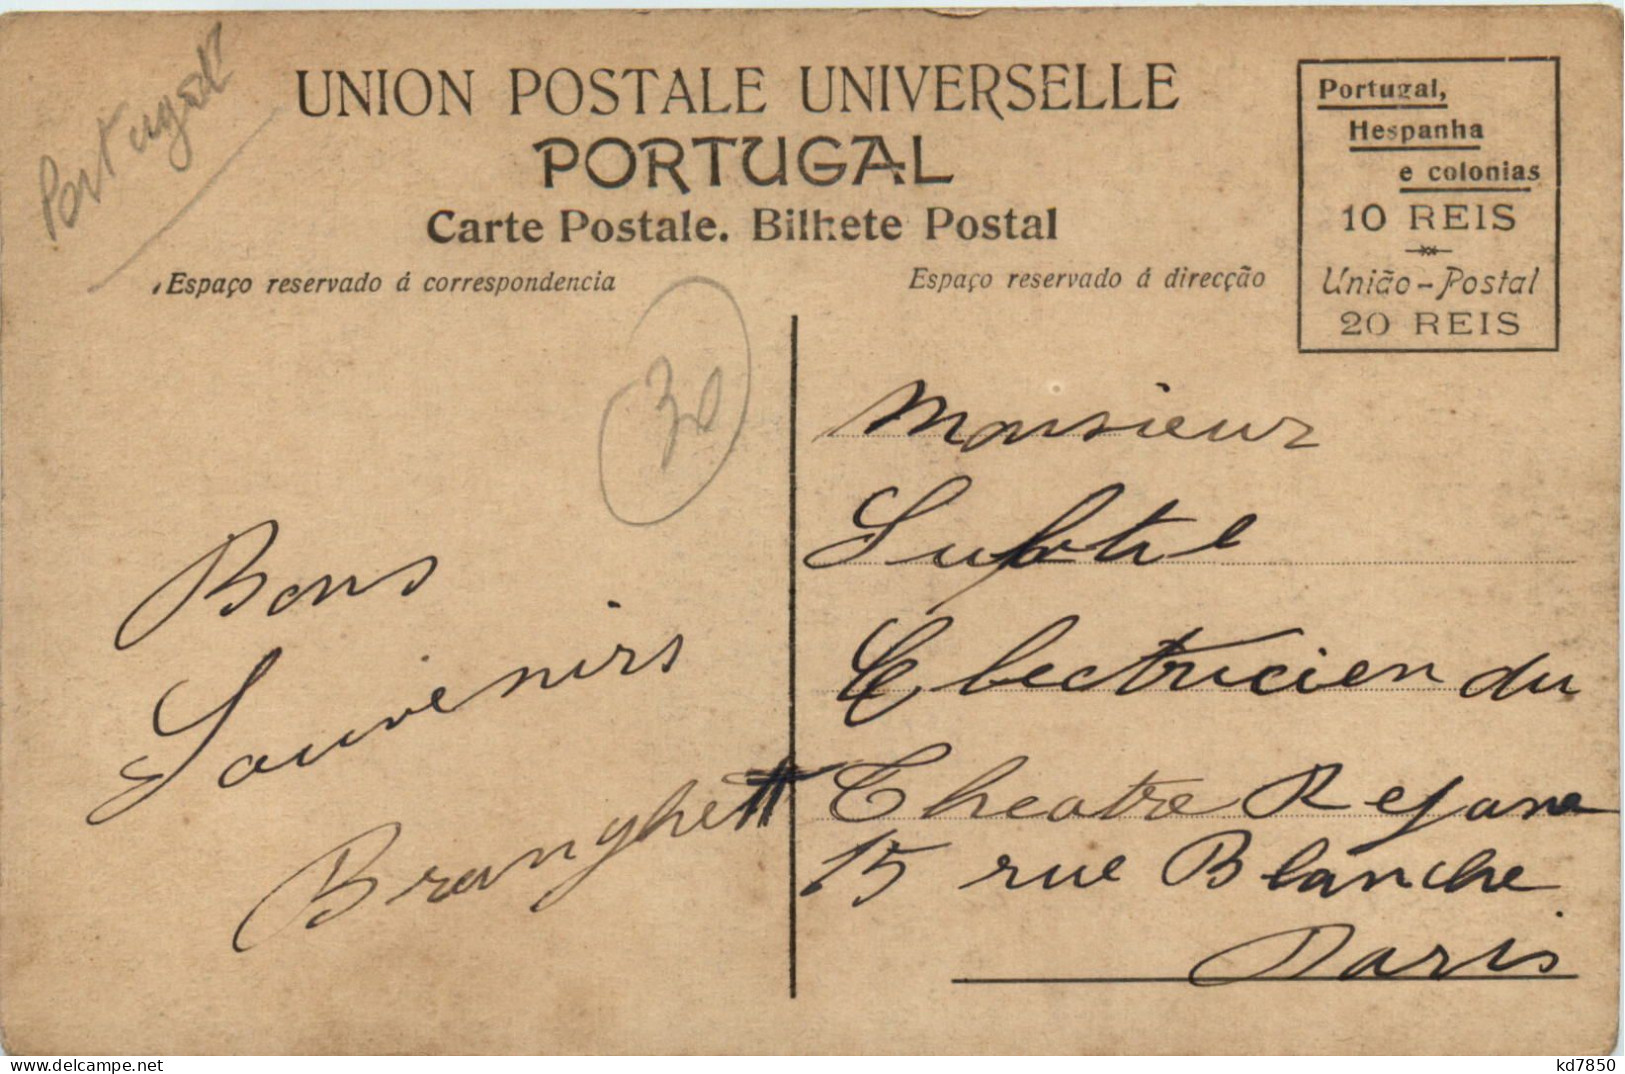 Portugal
UNION POSTALE UNIVERSELLE
PORTUGAL
Carte Postale. Bilhete Postal
Espaço reservado á correspondencia
Espaço reservado á direcção
Portugal,
Hespanha
e colonias
10 REIS
União-Postal
20 REIS
30
Bons
Souvenirs
Monsieur
Electricien du
Theatre Rejane
15 rue Blanche
Paris
www.delcampe.net
kd7850